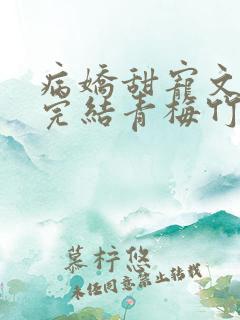 病嬌甜寵文
完結青梅竹
慕梓悠
未经同意禁止转载